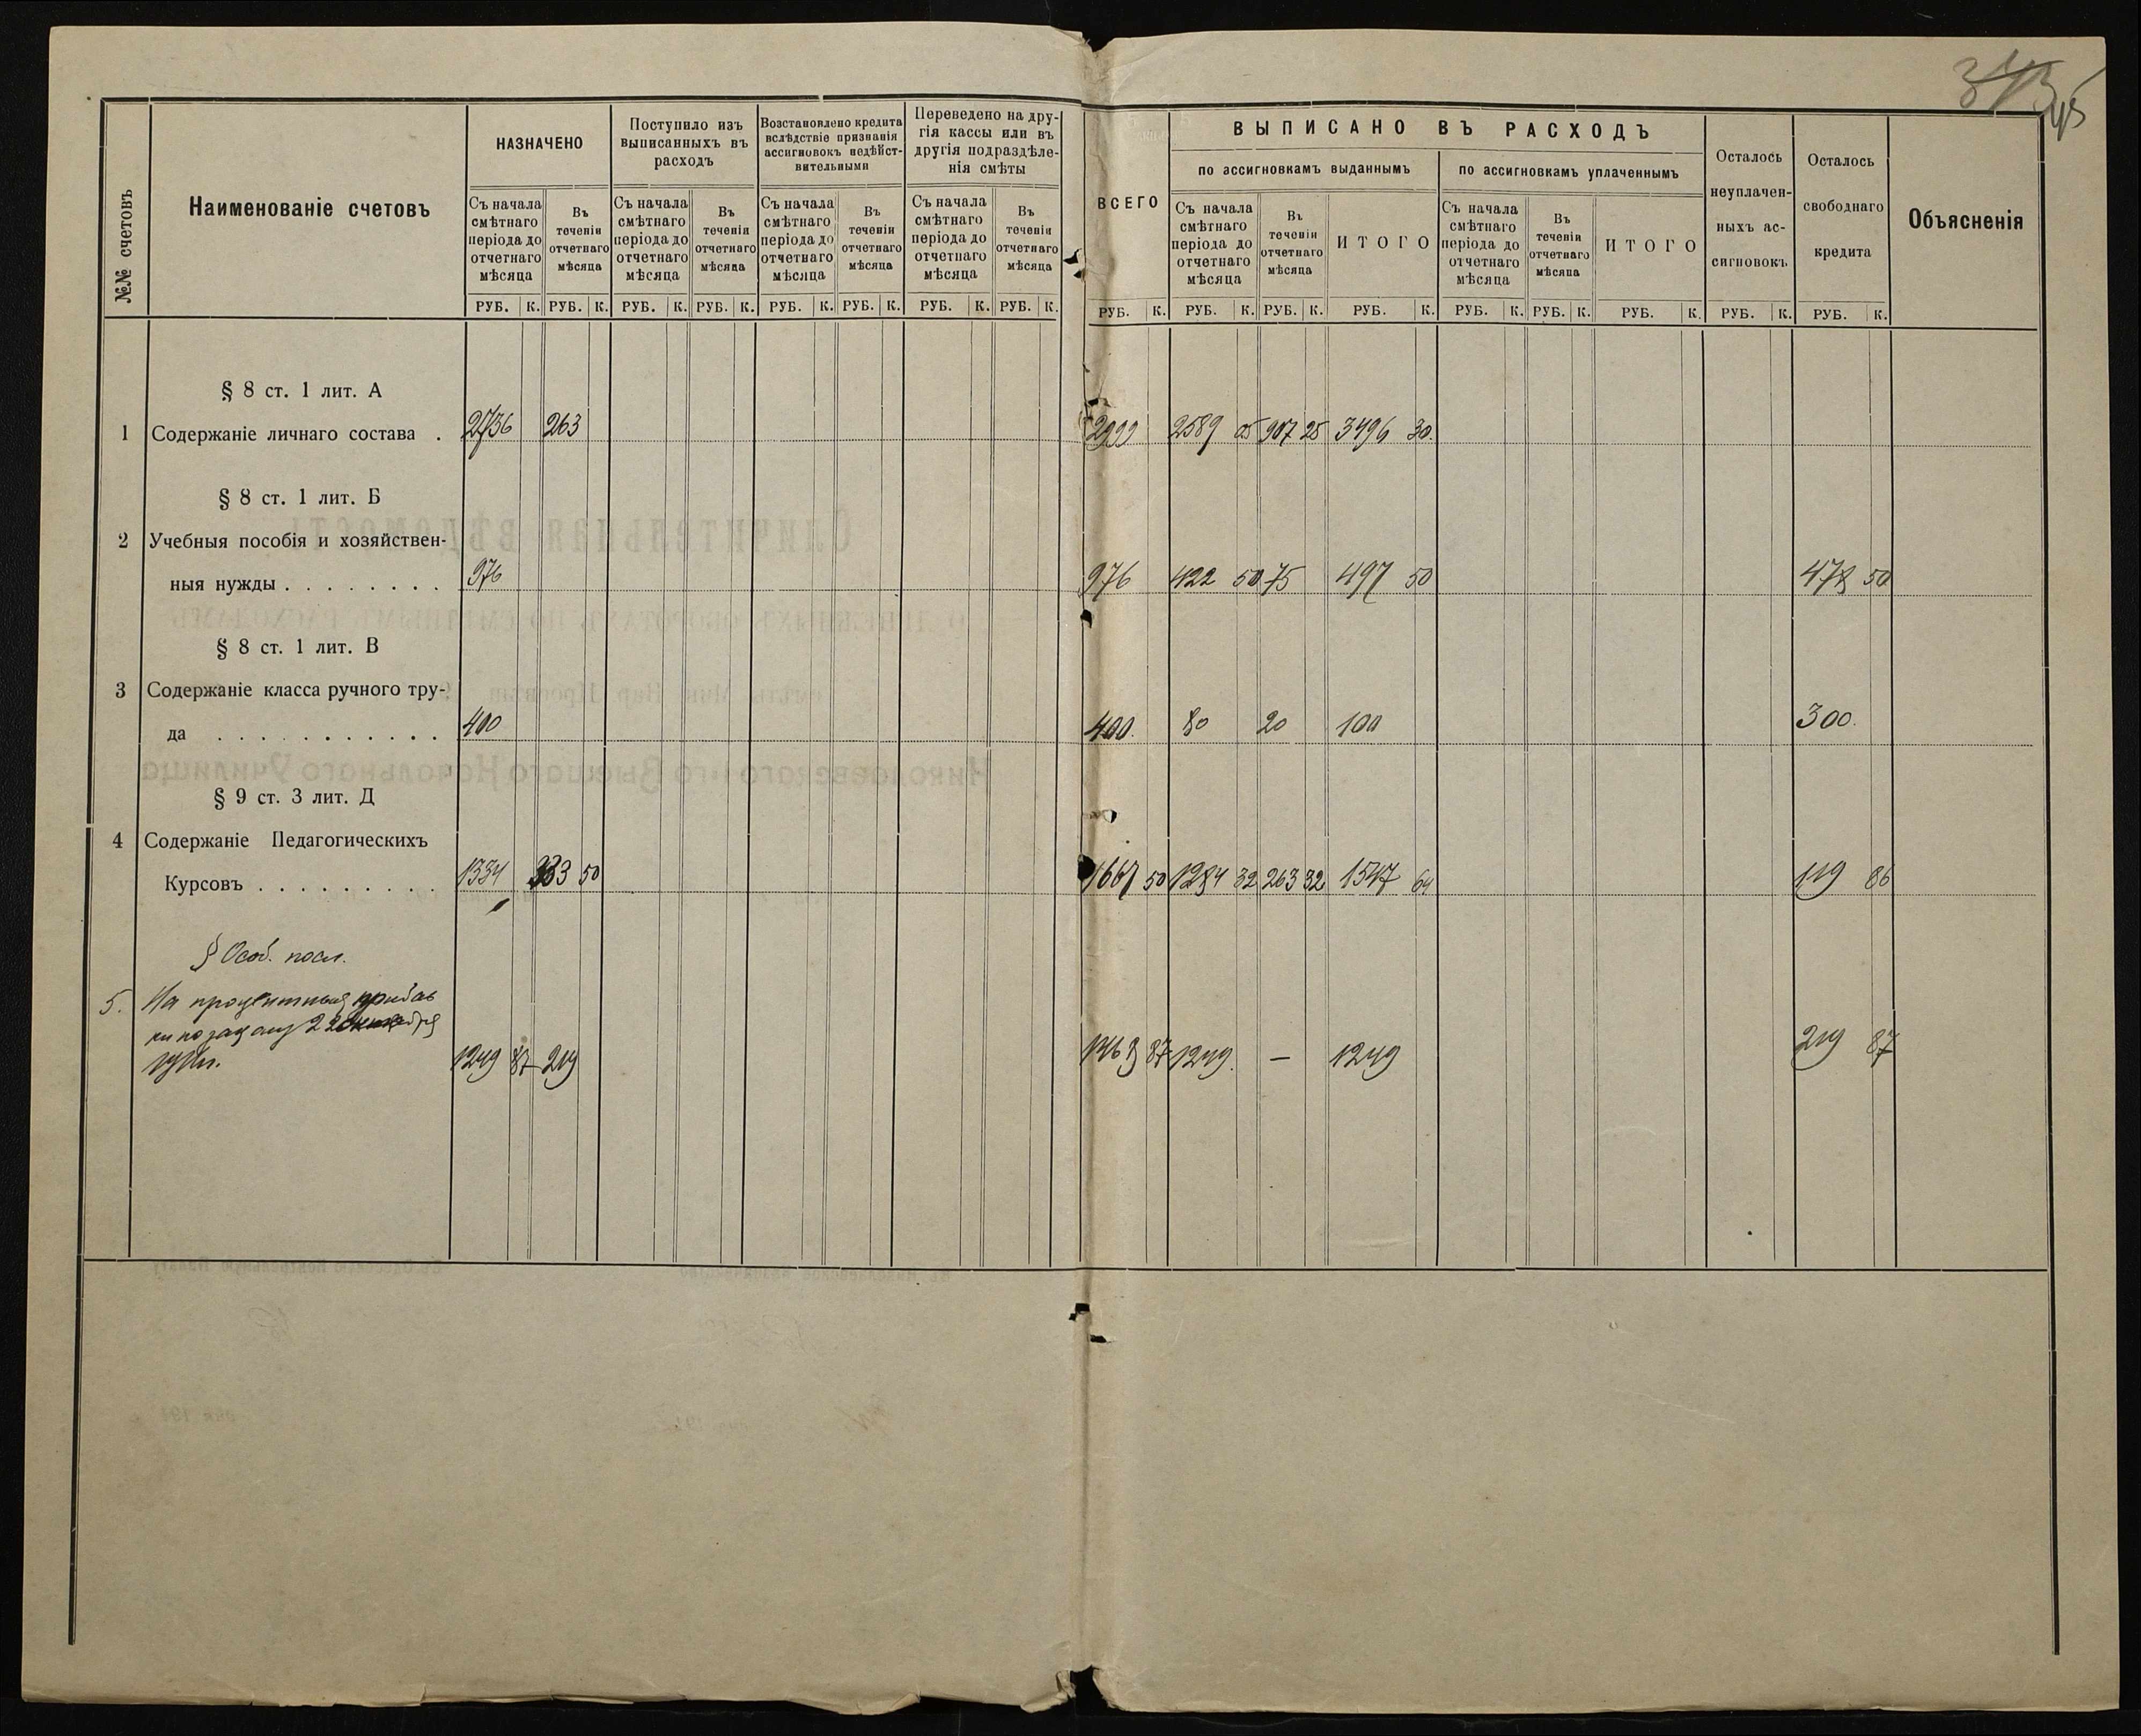 343
45
№№ счетовъ
Наименованіе счетовъ
НАЗНАЧЕНО
Съ начала
смѣтнаго
періода до
отчетнаго
мѣсяца
Въ
теченіи
отчетнаго
мѣсяца
Поступило изъ
выписанныхъ въ
расходъ
Съ начала
смѣтнаго
періода до
отчетнаго
мѣсяца
Въ
теченіи
отчетнаго
мѣсяца
Возстановлено кредита
вслѣдствіе признанія
ассигновокъ недѣйст-
вительными
Съ начала
смѣтнаго
періода до
отчетнаго
мѣсяца
Въ
теченіи
отчетнаго
мѣсяца
Переведено на дру-
гія кассы или въ
другія подраздѣле-
нія смѣты
Съ начала
смѣтнаго
періода до
отчетнаго
мѣсяца
Въ
теченіи
отчетнаго
мѣсяца
ВСЕГО
ВЫПИСАНО ВЪ РАСХОДЪ
по ассигновкамъ выданнымъ
Съ начала
смѣтнаго
періода до
отчетнаго
мѣсяца
Въ
теченіи
отчетнаго
мѣсяца
ИТОГО
по ассигновкамъ уплаченнымъ
Съ начала
смѣтнаго
періода до
отчетнаго
мѣсяца
Въ
теченіи
отчетнаго
мѣсяца
ИТОГО
Осталось
неуплачен-
ныхъ ас-
сигновокъ
Осталось
свободнаго
кредита
Объясненія
РУБ. К. РУБ. К. РУБ. К. РУБ. К. РУБ. К. РУБ. К. РУБ. К. РУБ. К. РУБ. К. РУБ. К. РУБ. К. РУБ. К. РУБ. К. РУБ. К. РУБ. К. РУБ. К. РУБ. К.
§ 8 ст. 1 лит. А
1 Содержаніе личнаго состава . 2736 263 2999 2589 05 907 25 3496 30.
§ 8 ст. 1 лит. Б
2 Учебныя пособія и хозяйствен-
ныя нужды . . . . . . . . 976 976 422 50 75 497 50 478 50
§ 8 ст. 1 лит. В
3 Содержаніе класса ручного тру-
да . . . . . . . . . . . 400 400. 80 20 100 300.
§ 9 ст. 3 лит. Д
4 Содержаніе Педагогическихъ
Курсовъ . . . . . . . . . 1334 333 50 1667 50 1284 32 263 32 1547 64 119 86
§ Особ. посл.
5. На процентныя прибав
ки по закону 22 октября
1249 87 219 1468 87 1249. — 1249 219 87